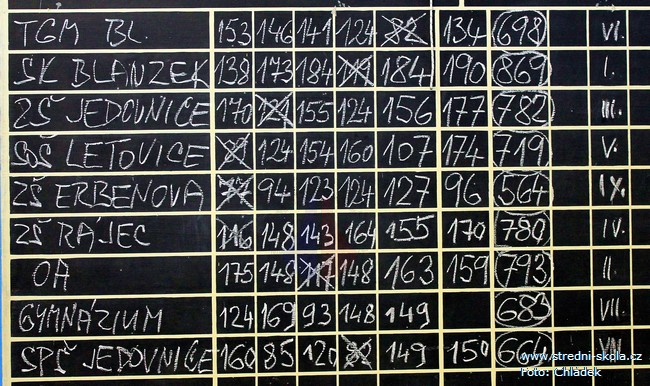 TGM BL. 153 146 141 124 82 134 698 VI.
SK BLANZEK 138 173 184 119 184 190 869 I.
ZŠ JEDOVNICE 170 121 155 124 156 177 782 III.
SOŠ LETOVICE 124 154 160 107 174 719 V.
ZŠ ERBENOVA 94 123 124 127 96 564 IX.
ZŠ RÁJEC 116 148 143 164 155 170 780 IV.
OA 175 148 117 148 163 159 793 II.
GYMNÁZIUM 124 169 93 148 149 683 VII.
SPŠ JEDOVNICE 160 85 120 149 150 664 VIII.
www.stredni-skola.cz
Foto: Chládek